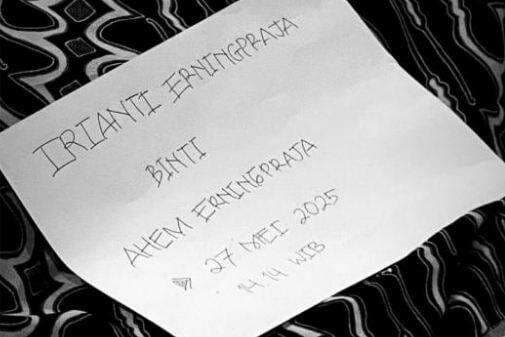 IRIANTI ERNINGPRAJA
BINTI
AHEM ERNINGPRAJA
27 MEI 2025
14.14 WIB